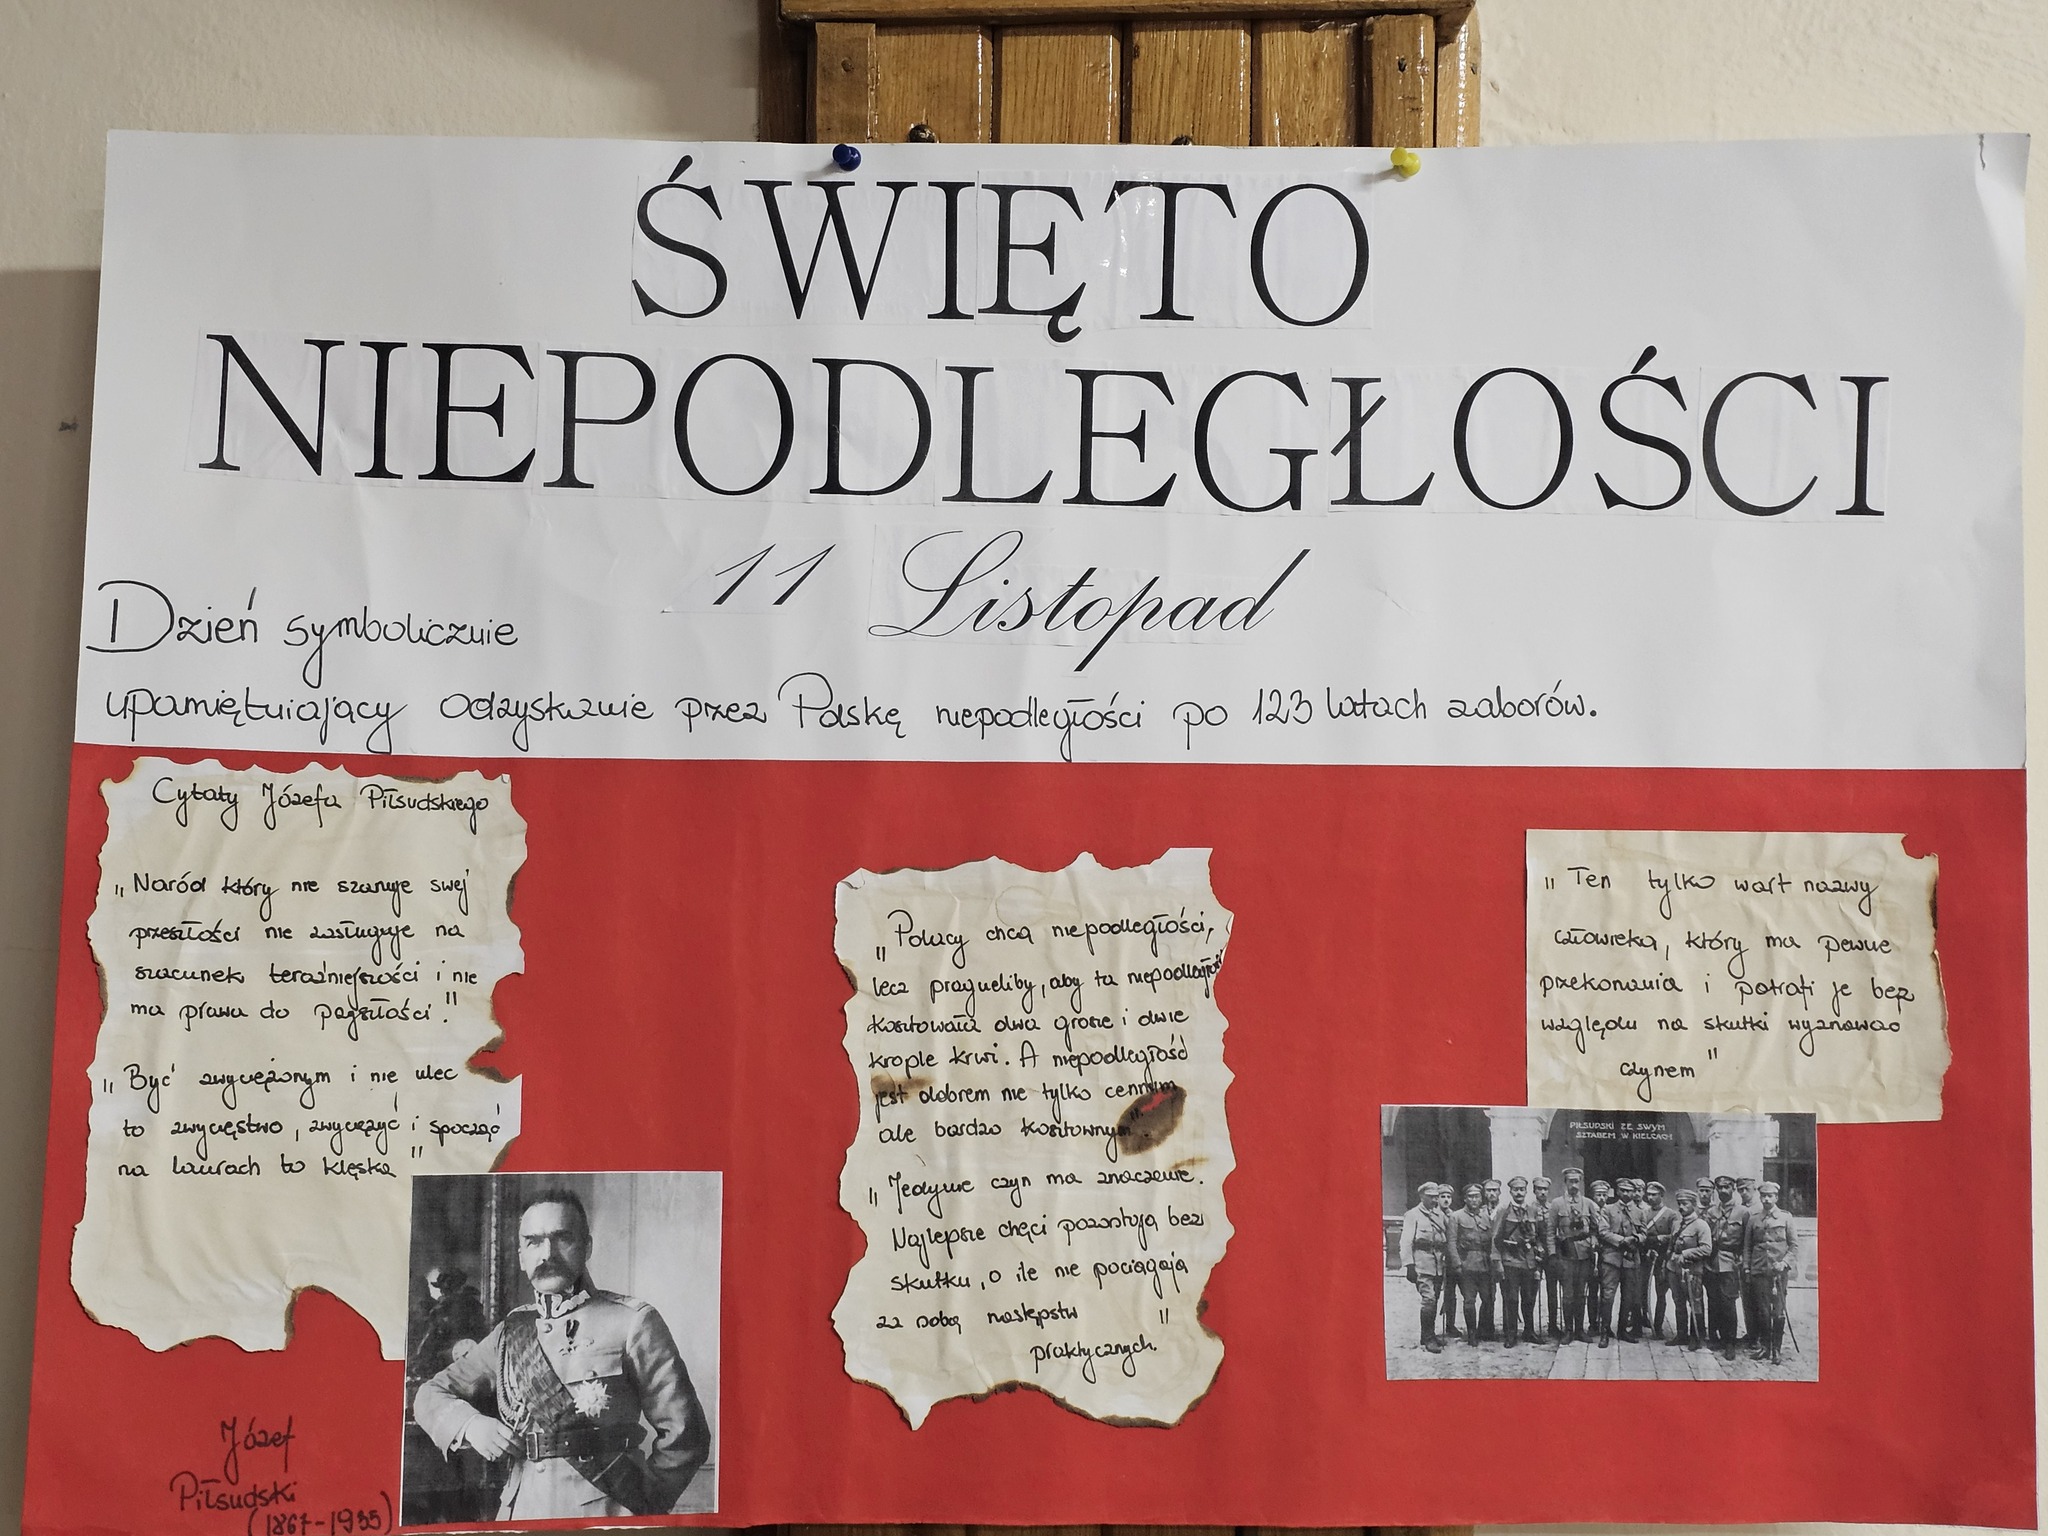 ŚWIĘTO
NIEPODLEGŁOŚCI
11 Listopad
Dzień symbolicznie
upamiętniający odzyskanie przez Polskę niepodległości po 123 latach zaborów.
Cytaty Józefa Piłsudskiego
„Naród który nie szanuje swej
przeszłości nie zasługuje na
szacunek teraźniejszości i nie
ma prawa do pszyszłości."
„Być zwyciężonym i nie ulec
to zwycięstwo, zwyciężyć i spocząć
na laurach to klęska"
Józef
Piłsudski
(1867-1935)
„Polacy chcą niepodległości,
lecz pragneliby, aby ta niepodległość
kosztowała dwa grosze i dwie
krople krwi. A niepodległość
jest dobrem nie tylko cennym
ale bardzo kosztownym".
„Jedynie czyn ma znaczenie.
Najlepsze chęci pozostują bez
skutku, o ile nie pociągają
za sobą następstw
praktycznych."
„Ten tylko wart nazwy
człowieka, który ma pewne
przekonania i potrafi je bez
względu na skutki wyznawać
czynem"
PIŁSUDSKI ZE SWYM
SZTABEM W KIELCACH